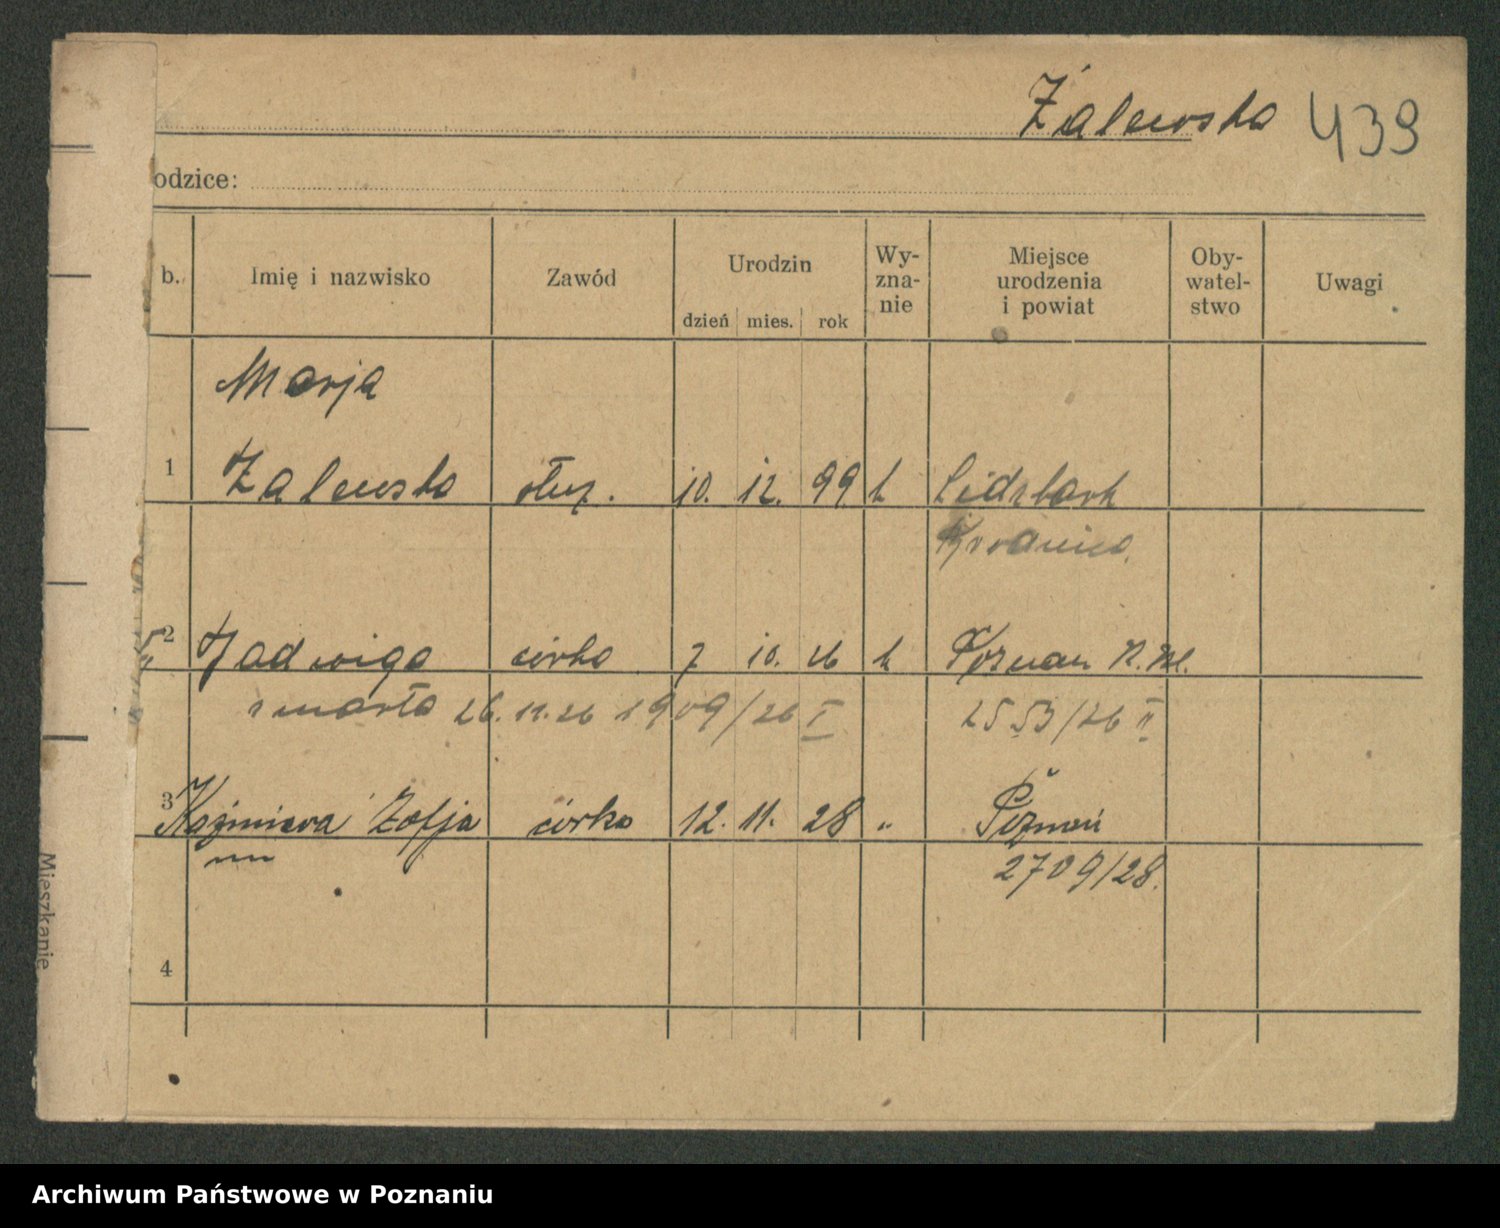 Zalewska 439
odzice:
b. Imię i nazwisko Zawód Urodzin dzień mies. rok Wy-zna-nie Miejsce urodzenia i powiat Oby-watel-stwo Uwagi
Marja
1 Zalewska służ. 10. 12. 99. k Lidzbark
2 Jadwiga córka 7 10. 26 k Poznań
zmarła 26.11.26 1909/26 I 2553/26 II
3 Kaźmiera Zofja córka 12. 11. 28 „ Poznań
2709/28.
4
Mieszkanie
Archiwum Państwowe w Poznaniu